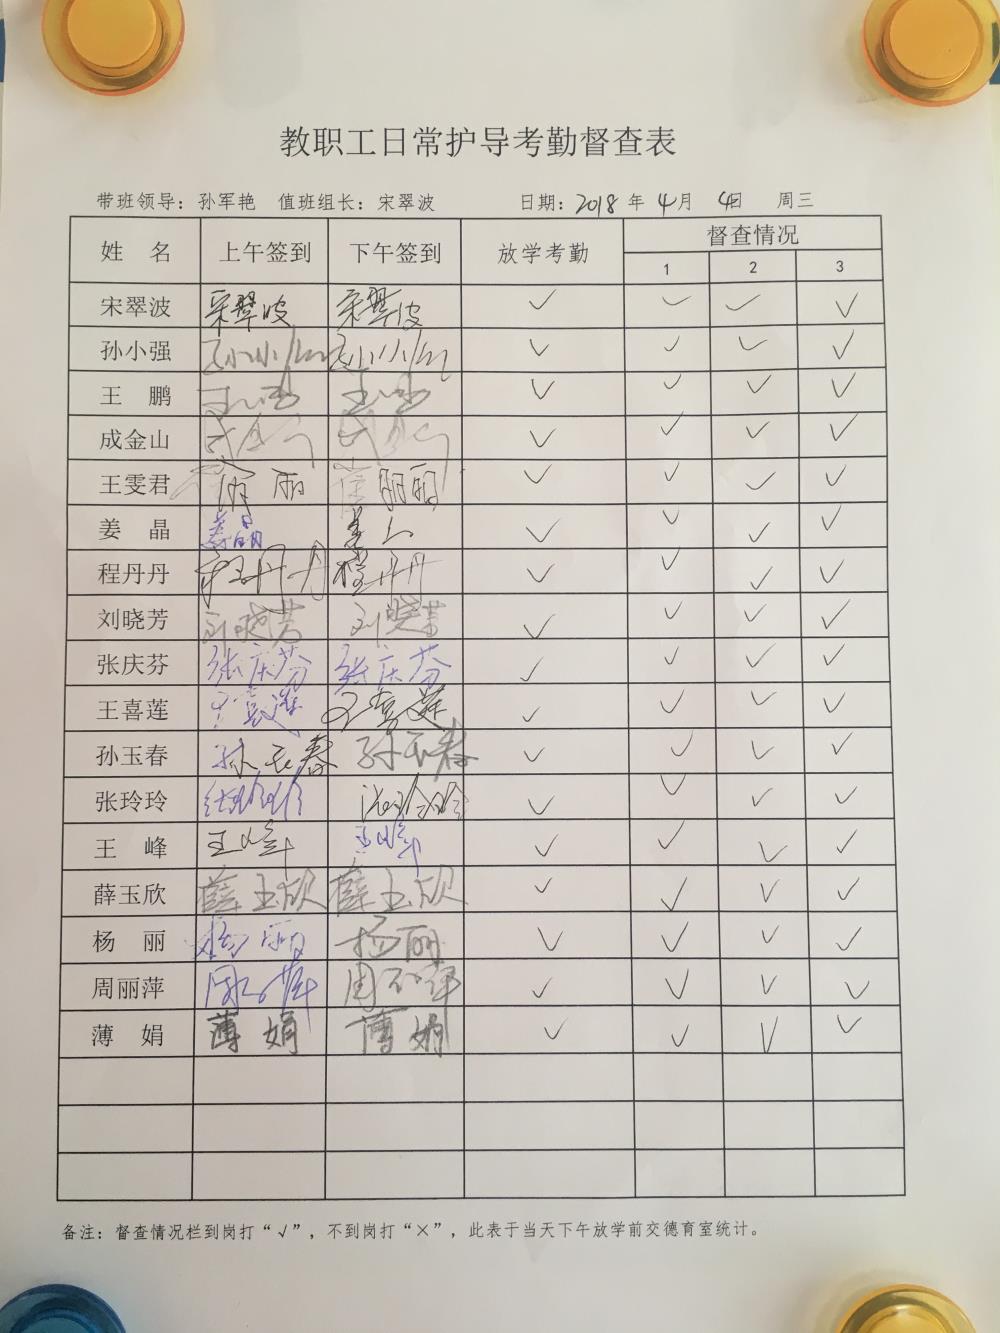 教职工日常护导考勤督查表
带班领导：孙军艳 值班组长：宋翠波 日期：2018 年 4月 4日 周三
姓 名 上午签到 下午签到 放学考勤 督查情况
1 2 3
宋翠波 宋翠波 宋翠波 ✓ ✓ ✓ ✓
孙小强 孙小强 孙小强 ✓ ✓ ✓ ✓
王 鹏 ✓ ✓ ✓ ✓
成金山 成金山 成金山 ✓ ✓ ✓ ✓
王雯君 ✓ ✓ ✓ ✓
姜 晶 姜晶 ✓ ✓ ✓ ✓
程丹丹 程丹丹 程丹丹 ✓ ✓ ✓ ✓
刘晓芳 刘晓芳 刘晓芳 ✓ ✓ ✓ ✓
张庆芬 张庆芬 张庆芬 ✓ ✓ ✓ ✓
王喜莲 王喜莲 王喜莲 ✓ ✓ ✓ ✓
孙玉春 孙玉春 孙玉春 ✓ ✓ ✓ ✓
张玲玲 张玲玲 张玲玲 ✓ ✓ ✓ ✓
王 峰 王峰 王峰 ✓ ✓ ✓ ✓
薛玉欣 薛玉欣 薛玉欣 ✓ ✓ ✓ ✓
杨 丽 杨丽 杨丽 ✓ ✓ ✓ ✓
周丽萍 周丽萍 周丽萍 ✓ ✓ ✓ ✓
薄 娟 薄娟 薄娟 ✓ ✓ ✓ ✓
备注：督查情况栏到岗打“√”，不到岗打“×”，此表于当天下午放学前交德育室统计。